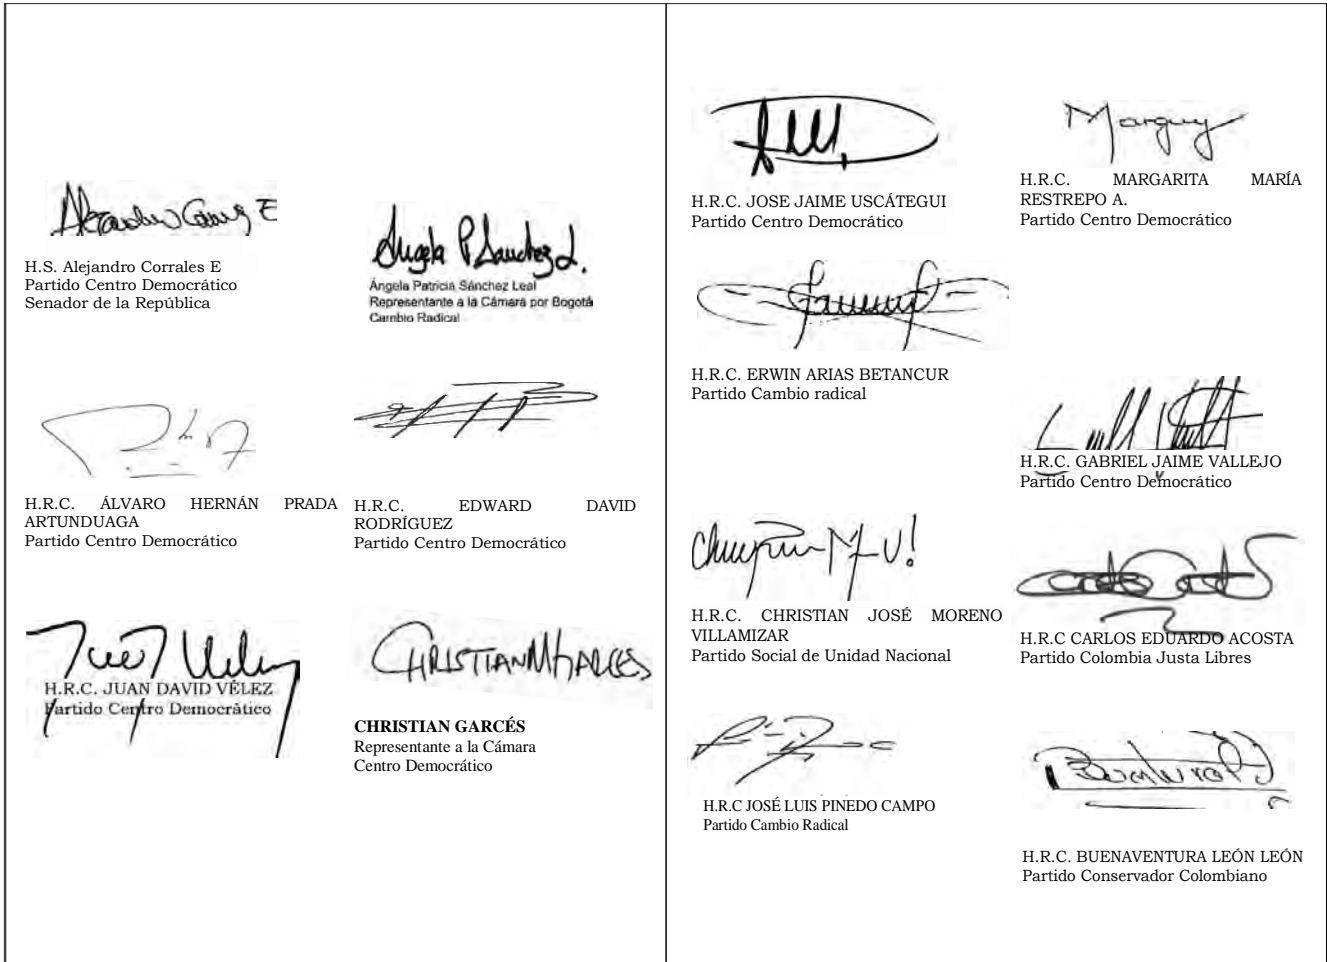 Angela P Sanchez L.
H.S. Alejandro Corrales E
Partido Centro Democrático
Senador de la República
Ángela Patricia Sánchez Leal
Representante a la Cámara por Bogotá
Cambio Radical
H.R.C. ÁLVARO HERNÁN PRADA
ARTUNDUAGA
Partido Centro Democrático
H.R.C. EDWARD DAVID
RODRÍGUEZ
Partido Centro Democrático
H.R.C. JUAN DAVID VÉLEZ
Partido Centro Democrático
CHRISTIAN M GARCES
CHRISTIAN GARCÉS
Representante a la Cámara
Centro Democrático
H.R.C. JOSE JAIME USCÁTEGUI
Partido Centro Democrático
Marguy
H.R.C. MARGARITA MARÍA
RESTREPO A.
Partido Centro Democrático
H.R.C. ERWIN ARIAS BETANCUR
Partido Cambio radical
H.R.C. GABRIEL JAIME VALLEJO
Partido Centro Democrático
H.R.C. CHRISTIAN JOSÉ MORENO
VILLAMIZAR
Partido Social de Unidad Nacional
H.R.C CARLOS EDUARDO ACOSTA
Partido Colombia Justa Libres
H.R.C JOSÉ LUIS PINEDO CAMPO
Partido Cambio Radical
H.R.C. BUENAVENTURA LEÓN LEÓN
Partido Conservador Colombiano